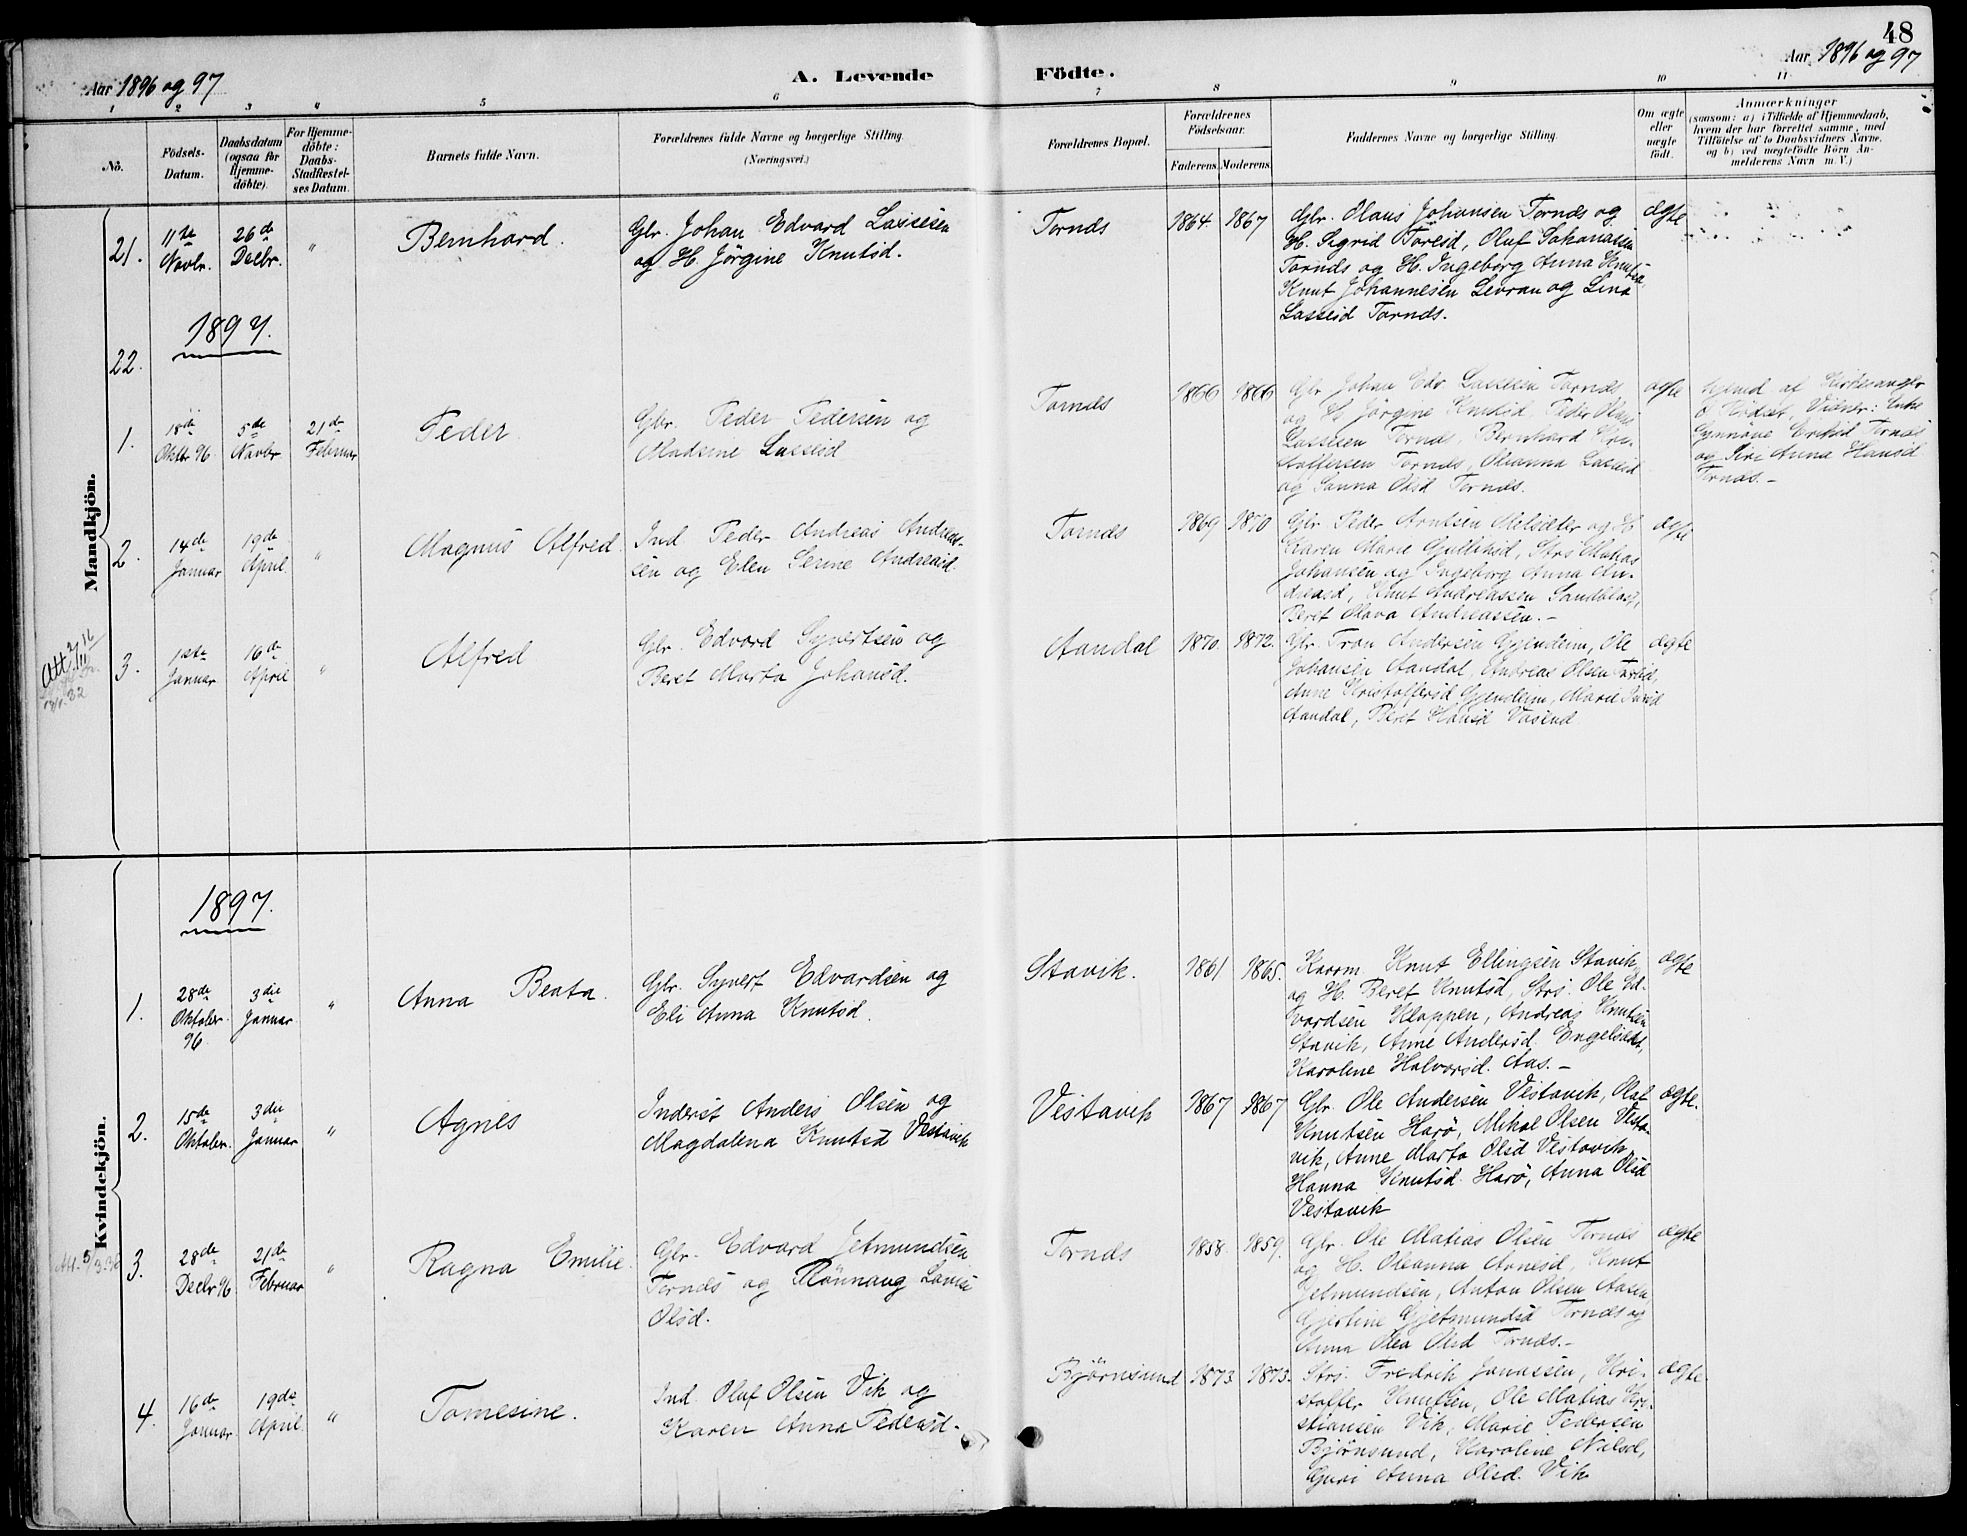 48
Aar 1896 og 97
A. Levende Födte.
Aar 1896 og 97
1 2 3 4 5 6 7 8 9 10 11
No.
Födsels-Datum.
Daabsdatum (ogsaa for Hjemme-döbte).
For Hjemme-döbte: Daabs-Stadfæstel-ses Datum.
Barnets fulde Navn.
Forældrenes fulde Navne og borgerlige Stilling. (Næringsvei.)
Forældrenes Bopæl.
Forældrenes Födselsaar.
Faderens.
Moderens.
Faddernes Navne og borgerlige Stilling.
Om ægte eller uægte født.
Anmærkninger
(saasom: a) i Tilfælde af Hjemmedaab,
hvem der har forrettet samme, med
Tilföielse af to Daabsvidners Navne.
og b) ved uægtefödte Börn An-
melderens Navn m. V.)
Mandkjön.
21. 11te Novbr. 26de Decbr. " Bernhard.
Gbr. Johan Edvard Lassesen
og H. Jörgine Knutsd.
Tornæs 1864 1867
Gbr. Olaus Johansen Tornæs og
H. Sigrid Toresd, Oluf Johanassen
Tornæs og H. Ingeborg Anna Knutsd
Knut Johannesen Levran og Lina
Lassesd Tornæs.
ægte
1897.
22.
1. 18de Oktbr 96 5te Novbr 21de Februar Peder
Gbr. Peder Pedersen og
Madsine Lassesd
Tornæs 1866 1866
Gbr Johan Edv. Lassesen Tornæs
og H. Jörgine Knutsd, Peder Olaus
Lassesen Tornæs, Bernhard Kri-
stoffersen Tornæs, Oleanna Lassesd
og Sanna Olsd Tornæs.
ægte
Hjemd af Kirkesanger
O Rödset, Vidner: Enke
Synnöve Eriksd Tornæs
og Pige Anna Hansd
Tornæs.-
2. 14de Januar 19de April " Magnus Alfred.
Ind. Peder Andreas Andreas-
sen og Elen Serine Andreasd.
Tornæs 1869 1870
Gbr Peder Arntsen Melsæter og H.
Karen Marie Gulliksd, Strs Matias
Johansen og Ingeborg Anna An-
dreasd, Knut Andreassen Sandblaast,
Beret Olava Andreassen.-
ægte
Att. 2/11 16
3. 1ste Januar 16de April " Alfred
Gbr. Edvard Syvertsen og
Beret Marta Johansd.
Aandal 1870. 1872.
Gbr. Tron Andersen Gjendem, Ole
Johansen Aandal, Andreas Olsen
Anne Kristoffersd Gjendem, Marie
Aandal, Beret Hansd Vasend
ægte
Kvindekjön.
1897.
1. 28de Oktober 96 3die Januar " Anna Beata.
Gbr. Syvert Edvardsen og
Eli Anna Knutsd.
Stavik. 1861 1865.
Kaarm. Knut Ellingsen Stavik
og H. Beret Knutsd, Strs. Ole Ed-
vardsen Kloppen, Andreas Knutsen
Stavik, Anne Andersd. Engelsæt,
Karoline Halvorsd. Aas.-
ægte
2. 15de Oktober 3die Januar " Agnes
Inderst Anders Olsen og
Magdalena Knutsd Vestavik
Vestavik 1867 1867
Gbr. Ole Andersen Vestavik, Olaf
Knutsen Harö, Mikal Olsen Vesta-
vik, Anne Marta Olsd Vestavik
Hanna Knutsd. Harö, Anna Olsd
Vestavik
ægte.
3. 28de Decbr 96 21de Februar " Ragna Emilie.
Gbr. Edvard Jetmundsen
Tornæs og Rönnaug Lovise
Olsd.
Tornæs 1858. 1859.
Gbr. Ole Matias Olsen Tornæs
og H. Oleanna Arnesd, Knut
Jetmundsen, Anton Olsen Aasen
Gjertine Gjetmundsd Tornæs og
Anna Olea Olsd Tornæs.-
ægte
4. 16de Januar 19de April " Tomesine.
Ind. Oluf Olsen Vik og
Karen Anna Pedersd.
Björnsund 1873 1873.
Strs. Fredrik Jonassen, Kri-
stoffer Knutsen, Ole Matias Kri-
stiansen Vik, Marie Pedersen
Björnsund, Karoline Nilsd,
Guri Anna Olsd. Vik
ægte.